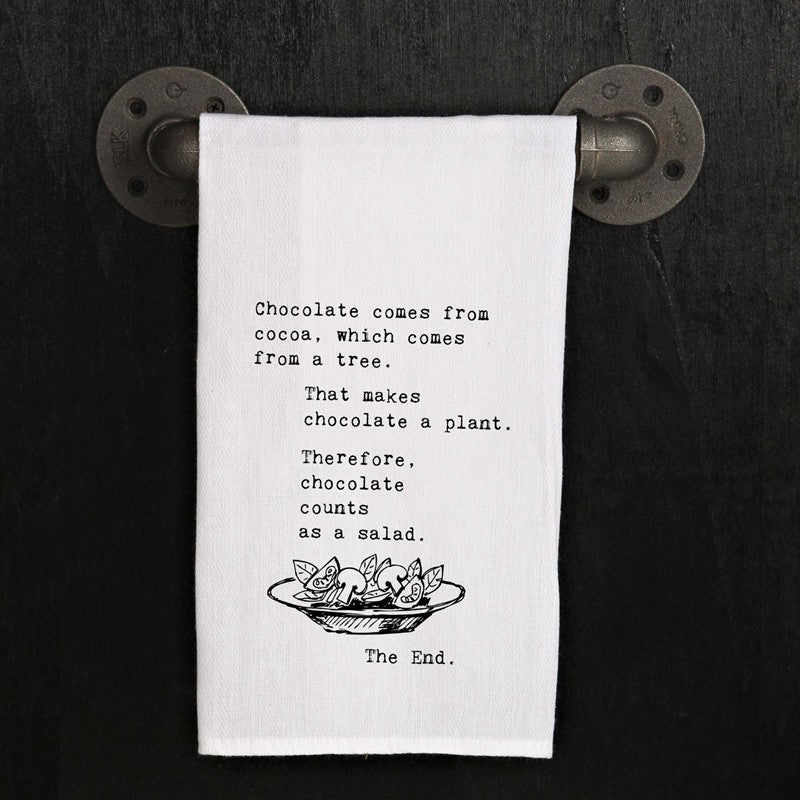 Chocolate comes from
cocoa, which comes
from a tree.
That makes
chocolate a plant.
Therefore,
chocolate
counts
as a salad.
The End.